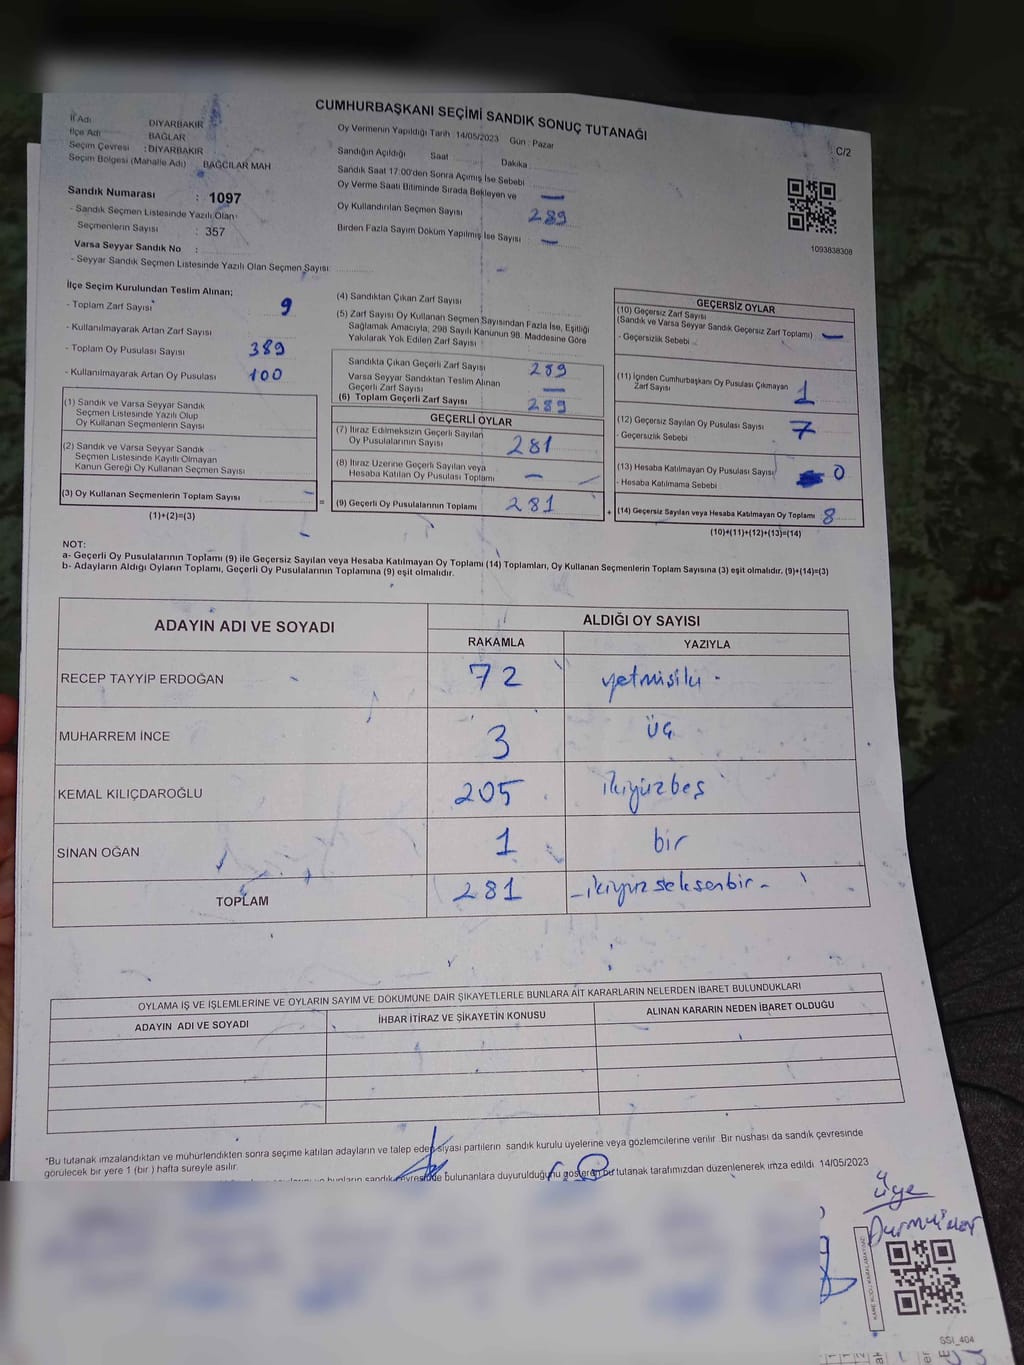 CUMHURBAŞKANI SEÇİMİ SANDIK SONUÇ TUTANAĞI
C/2
İl Adı DİYARBAKIR
İlçe Adı BAĞLAR
Seçim Çevresi : DİYARBAKIR
Seçim Bölgesi (Mahalle Adı) BAĞCILAR MAH
Sandık Numarası : 1097
- Sandık Seçmen Listesinde Yazılı Olan
Seçmenlerin Sayısı : 357
Varsa Seyyar Sandık No :
- Seyyar Sandık Seçmen Listesinde Yazılı Olan Seçmen Sayısı
Oy Vermenin Yapıldığı Tarih 14/05/2023 Gün : Pazar
Sandığın Açıldığı Saat Dakika
Sandık Saat 17.00'den Sonra Açımış İse Sebebi
Oy Verme Saati Bitiminde Sırada Bekleyen ve —
Oy Kullandırılan Seçmen Sayısı 289
Birden Fazla Sayım Döküm Yapılmış İse Sayısı —
1093838308
İlçe Seçim Kurulundan Teslim Alınan;
- Toplam Zarf Sayısı 9
- Kullanılmayarak Artan Zarf Sayısı
- Toplam Oy Pusulası Sayısı 389
- Kullanılmayarak Artan Oy Pusulası 100
(1) Sandık ve Varsa Seyyar Sandık
Seçmen Listesinde Yazılı Olup
Oy Kullanan Seçmenlerin Sayısı
(2) Sandık ve Varsa Seyyar Sandık
Seçmen Listesinde Kayıtlı Olmayan
Kanun Gereği Oy Kullanan Seçmen Sayısı
(3) Oy Kullanan Seçmenlerin Toplam Sayısı –
(1)+(2)=(3)
=
(4) Sandıktan Çıkan Zarf Sayısı
(5) Zarf Sayısı Oy Kullanan Seçmen Sayısından Fazla İse, Eşitliği
Sağlamak Amacıyla, 298 Sayılı Kanunun 98. Maddesine Göre
Yakılarak Yok Edilen Zarf Sayısı
Sandıkta Çıkan Geçerli Zarf Sayısı 289
Varsa Seyyar Sandıktan Teslim Alınan
Geçerli Zarf Sayısı —
(6) Toplam Geçerli Zarf Sayısı 289
GEÇERLİ OYLAR
(7) İtiraz Edilmeksizin Geçerli Sayılan
Oy Pusulalarının Sayısı 281
(8) İtiraz Üzerine Geçerli Sayılan veya
Hesaba Katılan Oy Pusulası Toplamı —
(9) Geçerli Oy Pusulalarının Toplamı 281
+
GEÇERSİZ OYLAR
(10) Geçersiz Zarf Sayısı
(Sandık ve Varsa Seyyar Sandık Geçersiz Zarf Toplamı) —
- Geçersizlik Sebebi
(11) İçinden Cumhurbaşkanı Oy Pusulası Çıkmayan
Zarf Sayısı 1
(12) Geçersiz Sayılan Oy Pusulası Sayısı 7
- Geçersizlik Sebebi
(13) Hesaba Katılmayan Oy Pusulası Sayısı 0
- Hesaba Katılmama Sebebi
(14) Geçersiz Sayılan veya Hesaba Katılmayan Oy Toplamı 8
(10)+(11)+(12)+(13)=(14)
NOT:
a- Geçerli Oy Pusulalarının Toplamı (9) ile Geçersiz Sayılan veya Hesaba Katılmayan Oy Toplamı (14) Toplamları, Oy Kullanan Seçmenlerin Toplam Sayısına (3) eşit olmalıdır. (9)+(14)=(3)
b- Adayların Aldığı Oyların Toplamı, Geçerli Oy Pusulalarının Toplamına (9) eşit olmalıdır.
ADAYIN ADI VE SOYADI ALDIĞI OY SAYISI
RAKAMLA YAZIYLA
RECEP TAYYİP ERDOĞAN 72 yetmişiki
MUHARREM İNCE 3 üç
KEMAL KILIÇDAROĞLU 205 ikiyüzbeş
SİNAN OĞAN 1 bir
TOPLAM 281 -ikiyüzseksenbir-
OYLAMA İŞ VE İŞLEMLERİNE VE OYLARIN SAYIM VE DÖKÜMÜNE DAİR ŞİKAYETLERLE BUNLARA AİT KARARLARIN NELERDEN İBARET BULUNDUKLARI
ADAYIN ADI VE SOYADI İHBAR İTİRAZ VE ŞİKAYETİN KONUSU ALINAN KARARIN NEDEN İBARET OLDUĞU
*Bu tutanak imzalandıktan ve mühürlendikten sonra seçime katılan adayların ve talep eden siyasi partilerin sandık kurulu üyelerine veya gözlemcilerine verilir. Bir nüshası da sandık çevresinde
görülecek bir yere 1 (bir) hafta süreyle asılır.
bulunanlara duyurulduğunu gösteren bu tutanak tarafımızdan düzenlenerek imza edildi 14/05/2023
Üye
SSI_404